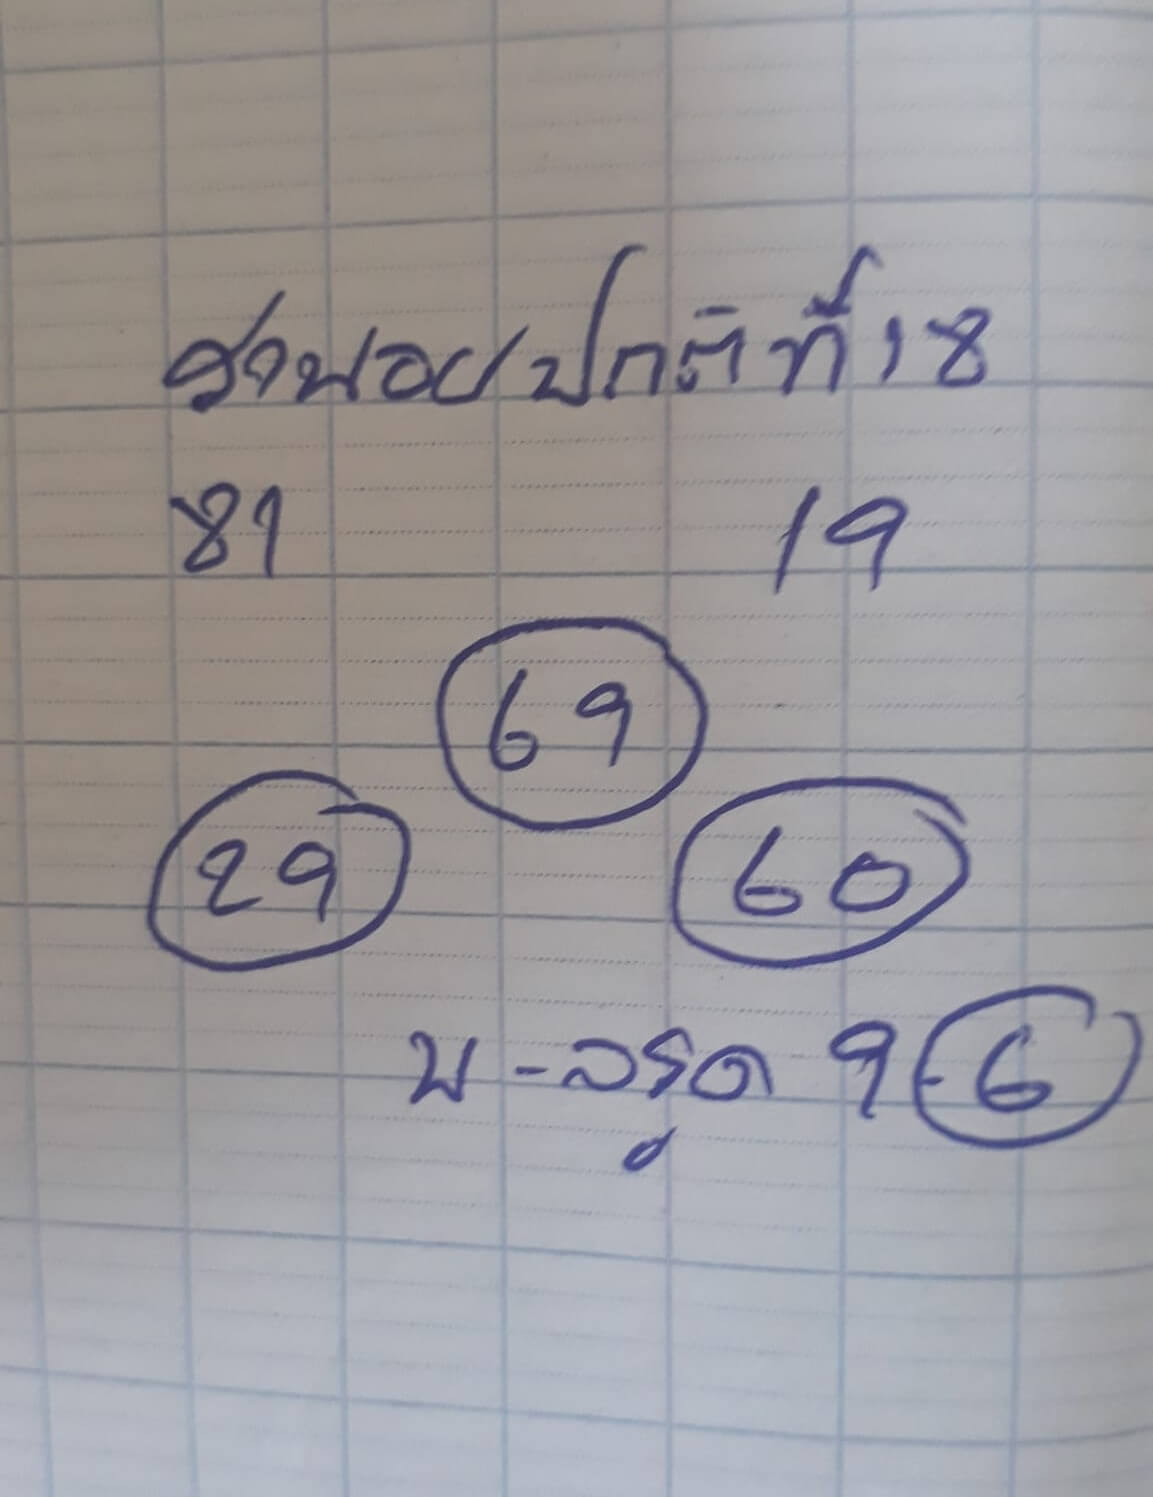 ฮานอยปกติที่ 18
81 19
69
29 60
บ - ล รูด 9 - 6